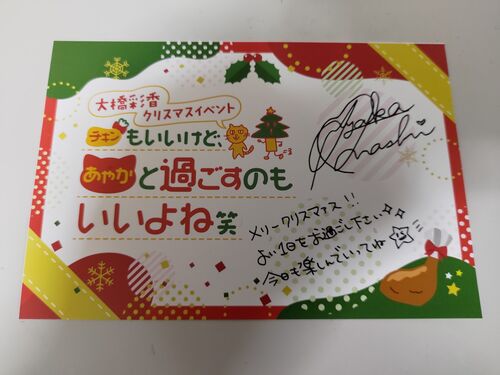 大橋彩香
クリスマスイベント
チキンもいいけど、
あやかと過ごすのも
いいよね笑
Ayaka
Ohashi
メリークリスマス!!
よい1日をお過ごし下さい
今日も楽しんでいってね